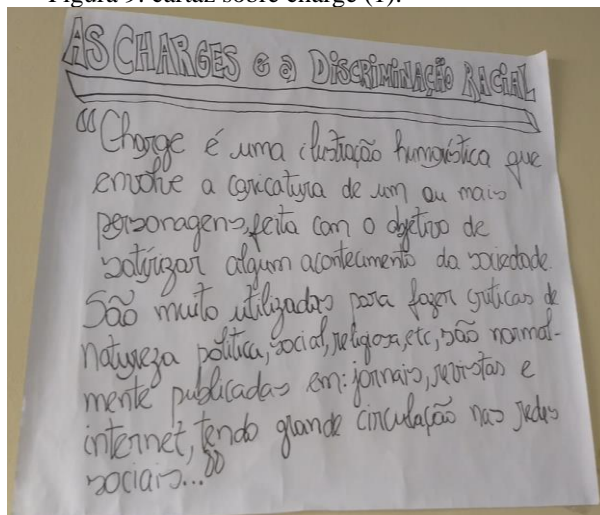 Figura 9: cartaz sobre charge (1).
AS CHARGES e a DISCRIMINAÇÃO RACIAL
"Charge é uma ilustração humorística que
envolve a caricatura de um ou mais
personagens, feita com o objetivo de
satirizar algum acontecimento da sociedade.
São muito utilizadas para fazer críticas de
natureza política, social, religiosa, etc, são normal-
mente publicadas em: jornais, revistas e
internet, tendo grande circulação nas redes
sociais..."